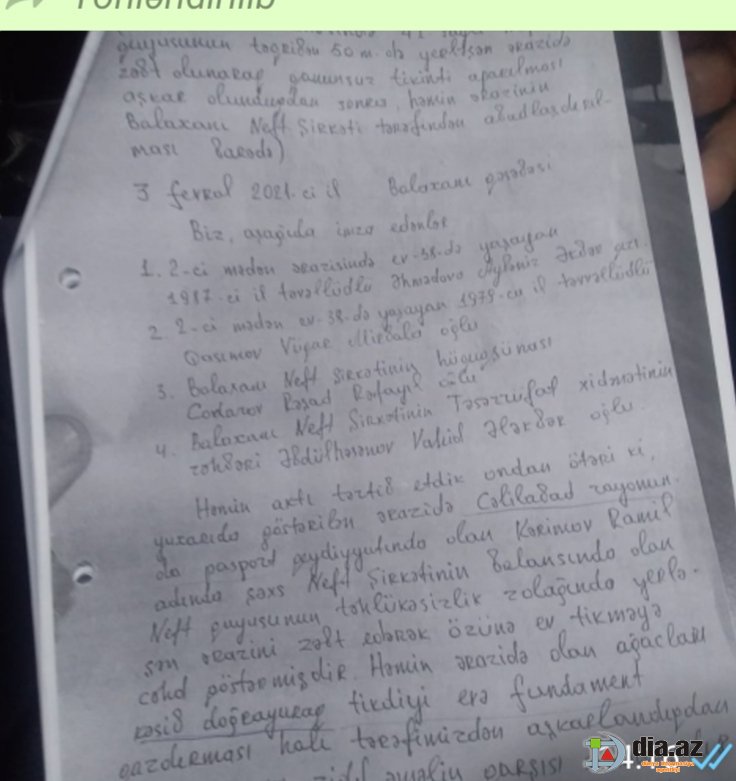 Yönləndirilib
quyusunun təqribən 50 m.də yerləşən ərazidə
zəbt olunaraq, qanunsuz tikinti aparılması
aşkar olunduqdan sonra, həmin ərazinin
Balaxanı Neft Şirkəti tərəfindən abadlaşdırıl-
ması barədə)
3 fevral 2021-ci il Balaxanı qəsəbəsi
Biz, aşağıda imza edənlər
1. 2-ci mədən ərazisində ev-38-də yaşayan
1987-ci il təvəllüdlü Əhmədova qızı.
2. 2-ci mədən ev-38-də yaşayan 1979-cu il təvvəllüdlü
Qasımov Vüqar Mirbala oğlu
3. Balaxanı Neft Şirkətinin hüquqşünası
Rəşad Rafayıl oğlu
4. Balaxanı Neft Şirkətinin Təsərrüfat xidmətinin
rəhbəri Əbdülhəsənov Vahid Ələkbər oğlu.
Həmin aktı tərtib etdik ondan ötəri ki,
yuxarıda göstərilən ərazidə Cəlilabad rayonun-
da pasport qeydiyyatında olan Kərimov Ramil
adında şəxs Neft Şirkətinin balansında olan
Neft quyusunun təhlükəsizlik zolağında yerlə-
şən ərazini zəbt edərək özünə ev tikməyə
cəhd göstərmişdir. Həmin ərazidə olan ağacları
kəsib doğrayaraq tikdiyi evə fundament
qazdırması halı tərəfimizdən aşkarlandıqdan
qarşısı
dia.az